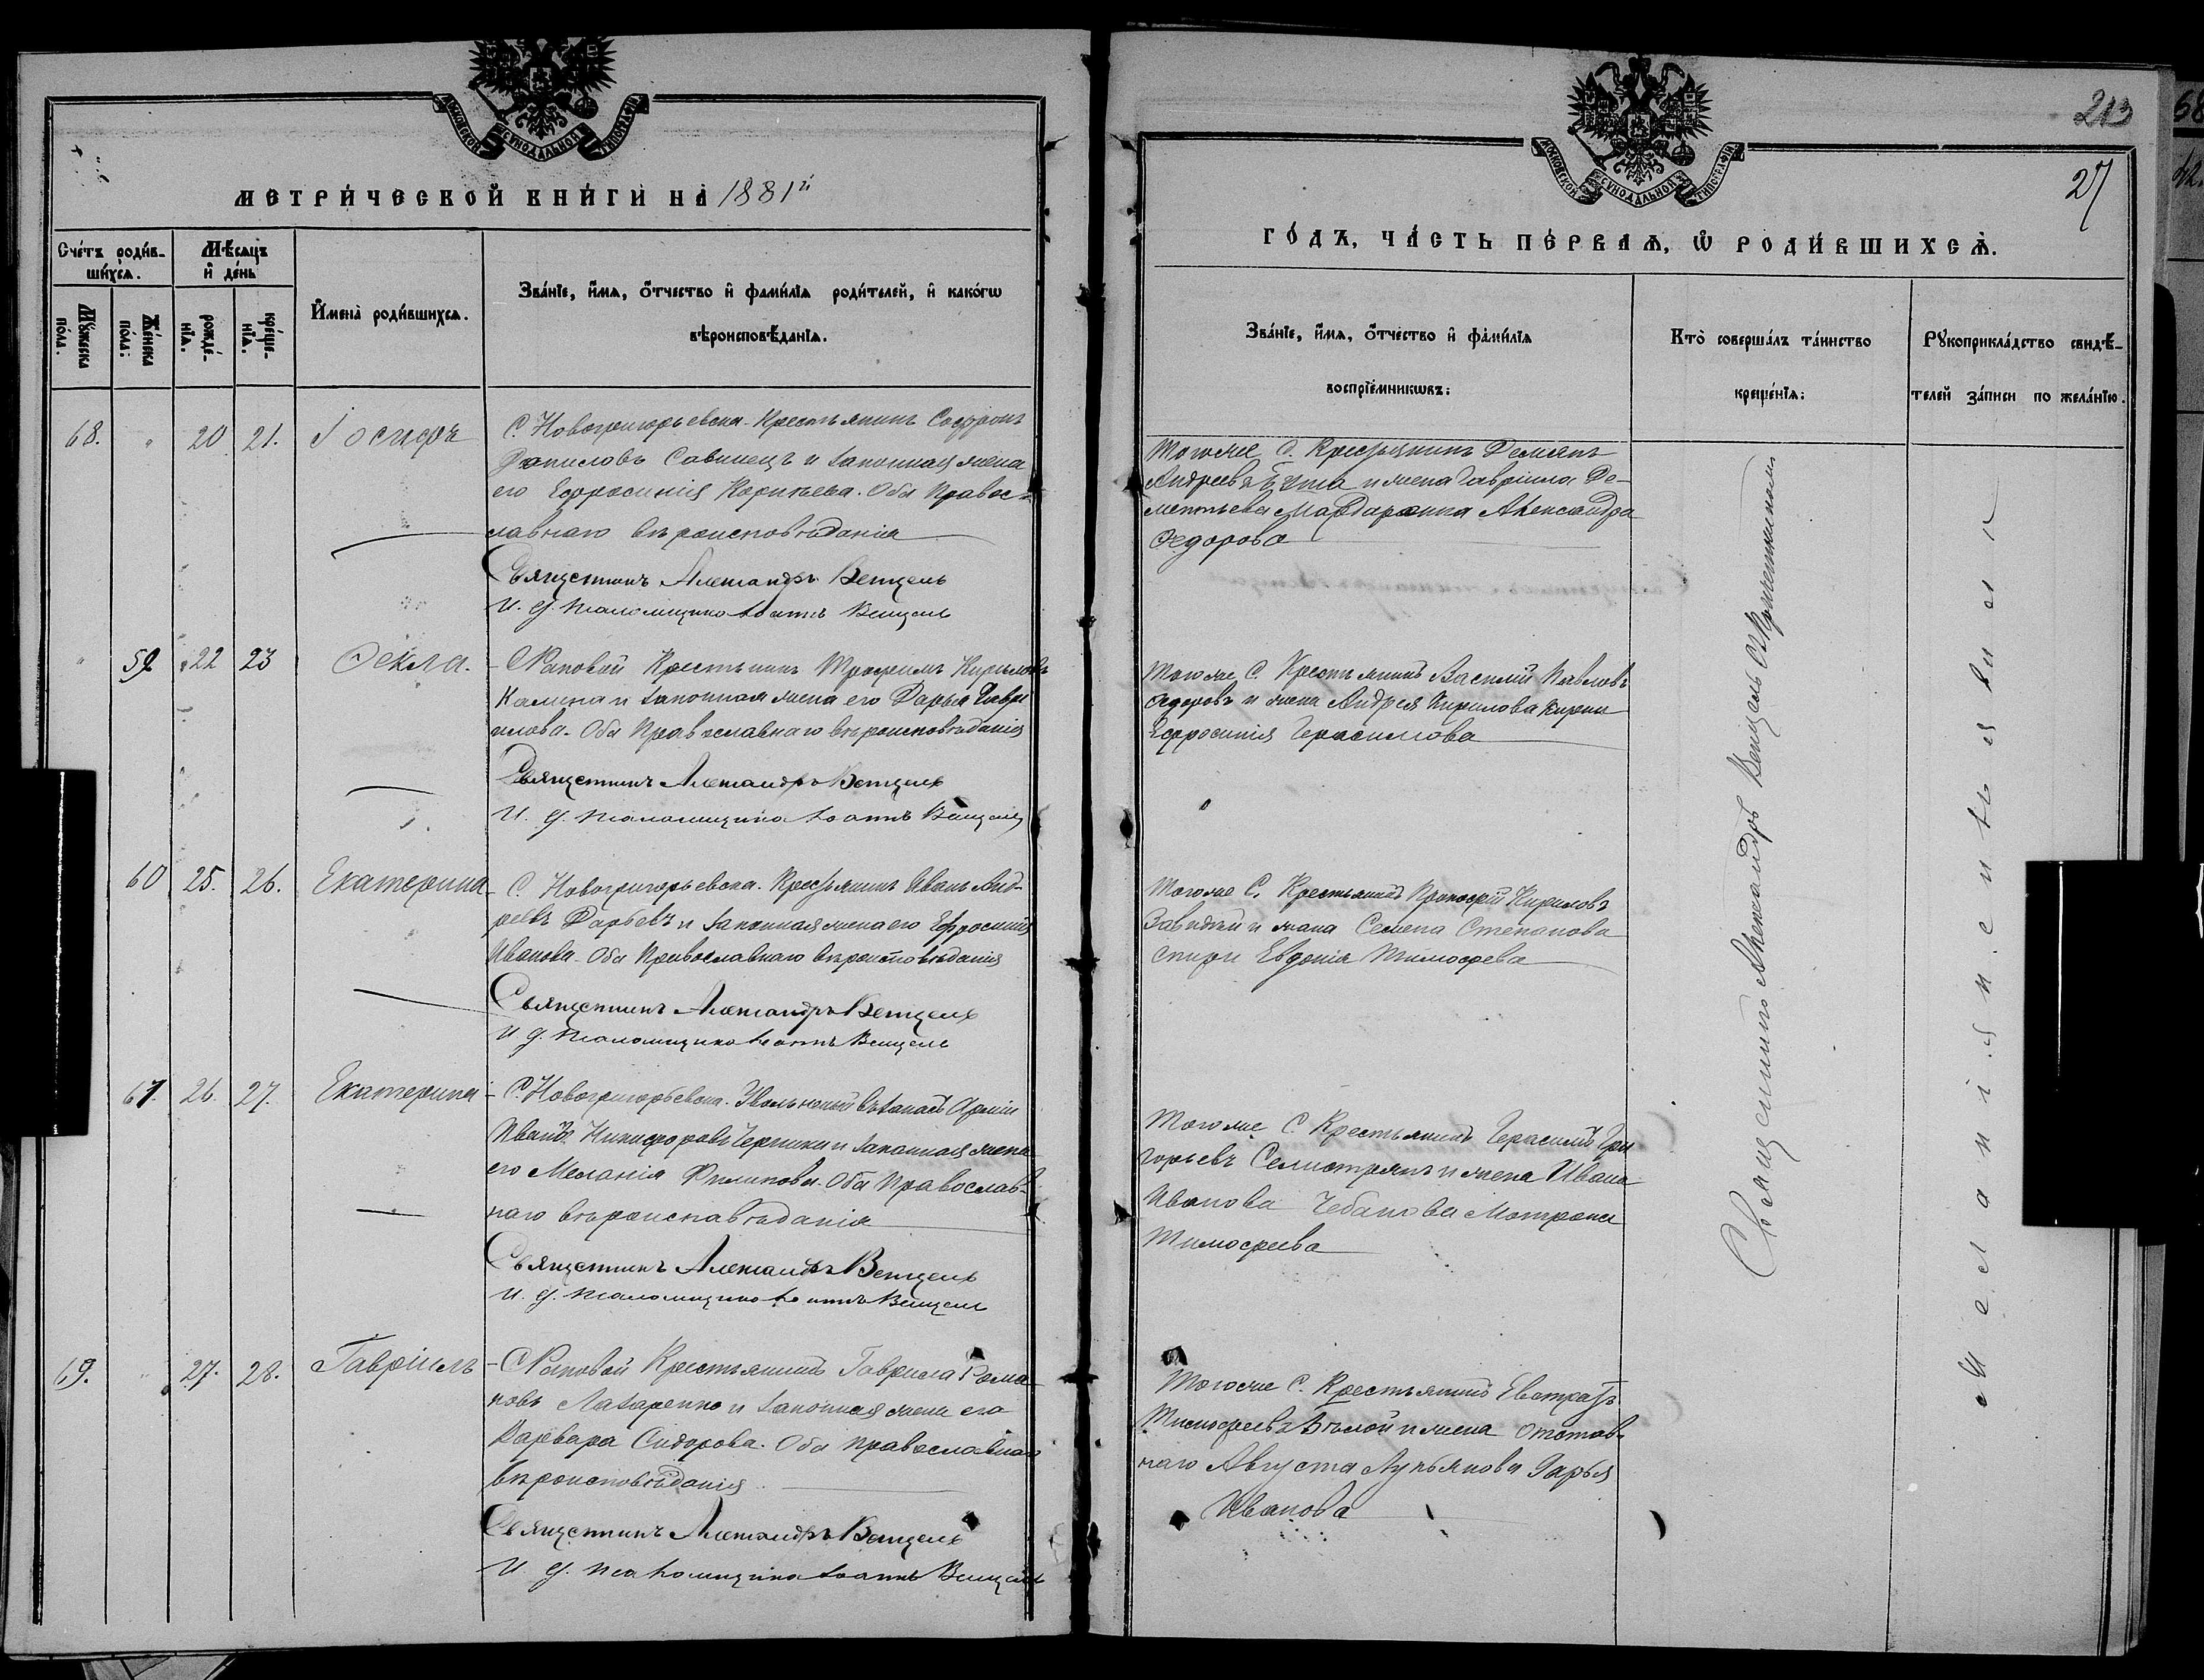 МОСКОВСКОЙ СѴНОДАЛЬНОЙ ТИПОГРАФІИ
МЕТРИ́ЧЕСКОЙ КНИ́ГИ НА̀ 1881й
Сче́тъ роди́в-
ши́хсѧ.
Мѣ́сѧцъ
и҆ де́нь
Мꙋ́жеска
по́ла.
Же́нска
по́ла:
рожде́-
нїѧ.
креще́-
нїѧ.
И҆мена̀ роди́вшихсѧ.
Зва́нїе, и҆́мѧ, ѻ҆́тчество и҆ фами́лїѧ роди́телей, и҆ како́гѡ
вѣроисповѣ́данїѧ.
68. " 20 21. Іосифъ
С. Новогригорьевска. Крестьянинъ Софронъ
Даниловъ Савинецъ и законная жена
его Ефросинія Корнѣева. Оба Правос-
славнаго вѣроисповѣданія
Священникъ Александръ Венцель
И. д. псаломщика Іоаннъ Венцель
" 59 22 23 Ѳекла.
С. Раковой Крестьянинъ Трофимъ Кириловъ
Калина и законная жена его Дарья Гаври
илова. Оба Православнаго вѣроисповѣданія
Священникъ Александръ Венцель
И. д. псаломщика Іоаннъ Венцель
60 25. 26. Екатерина
С. Новогригорьевска. Крестьянинъ Иванъ Анд-
реевъ и законная жена его Ефросинія
Иванова. Оба Православнаго вѣроисповѣданія
Священникъ Александръ Венцель
И д. псаломщика Іоаннъ Венцель
61. 26. 27. Екатерина
С. Новогригорьевска. Уволенный въ запасъ Арміи
Иванъ Никифоровъ и законная жена
его Меланія Филипова. Оба Православ-
наго вѣроисповѣданія
Священникъ Александръ Венцель
И. д. псаломщика Іоаннъ Венцель
69. " 27. 28. Гавріилъ
С. Раковой Крестьянинъ Гаврила Рома
новъ Лазаренко и законная жена его
Варвара Сидорова. Оба православнаго
вѣроисповѣданія
Священникъ Александръ Венцель
И д. псаломщика Іоаннъ Венцель
213
МОСКОВСКОЙ СѴНОДАЛЬНОЙ ТИПОГРАФІИ
27
ГО́ДЪ, ЧА́СТЬ ПЕ́РВАѦ, Ѡ҆ РОДИ́ВШИХСѦ.
Зва́нїе, и҆́мѧ, ѻ҆́тчество и҆ фами́лїѧ
воспрїе́мникѡвъ:
Кто̀ соверша́лъ та́инство
креще́нїѧ:
Рꙋкоприкла́дство свидѣ́-
телей за́писи по жела́нїю.
Тогоже С. Крестьянинъ Демянъ
Андреевъ и жена Гавріила Де-
ментьева Александра
Ѳедорова
Тогоже С. Крестьянинъ Василій Павловъ
и жена Андрея Кирилова
Ефросинія Герасимова
Тогоже С. Крестьянинъ Прокофій Кириловъ
и жена Семена Степанова
Евдокія Тимофеева
Тогоже С. Крестьянинъ Герасимъ Гри
горьевъ Селистрянъ и жена Ивана
Иванова Чебанова Матрона
Тимофеева
Тогоже С. Крестьянинъ Евстратъ
Тимофеевъ Бѣлой и жена отстав-
наго Августа Лукьянова Дарья
Иванова
Священникъ Александръ Венцель